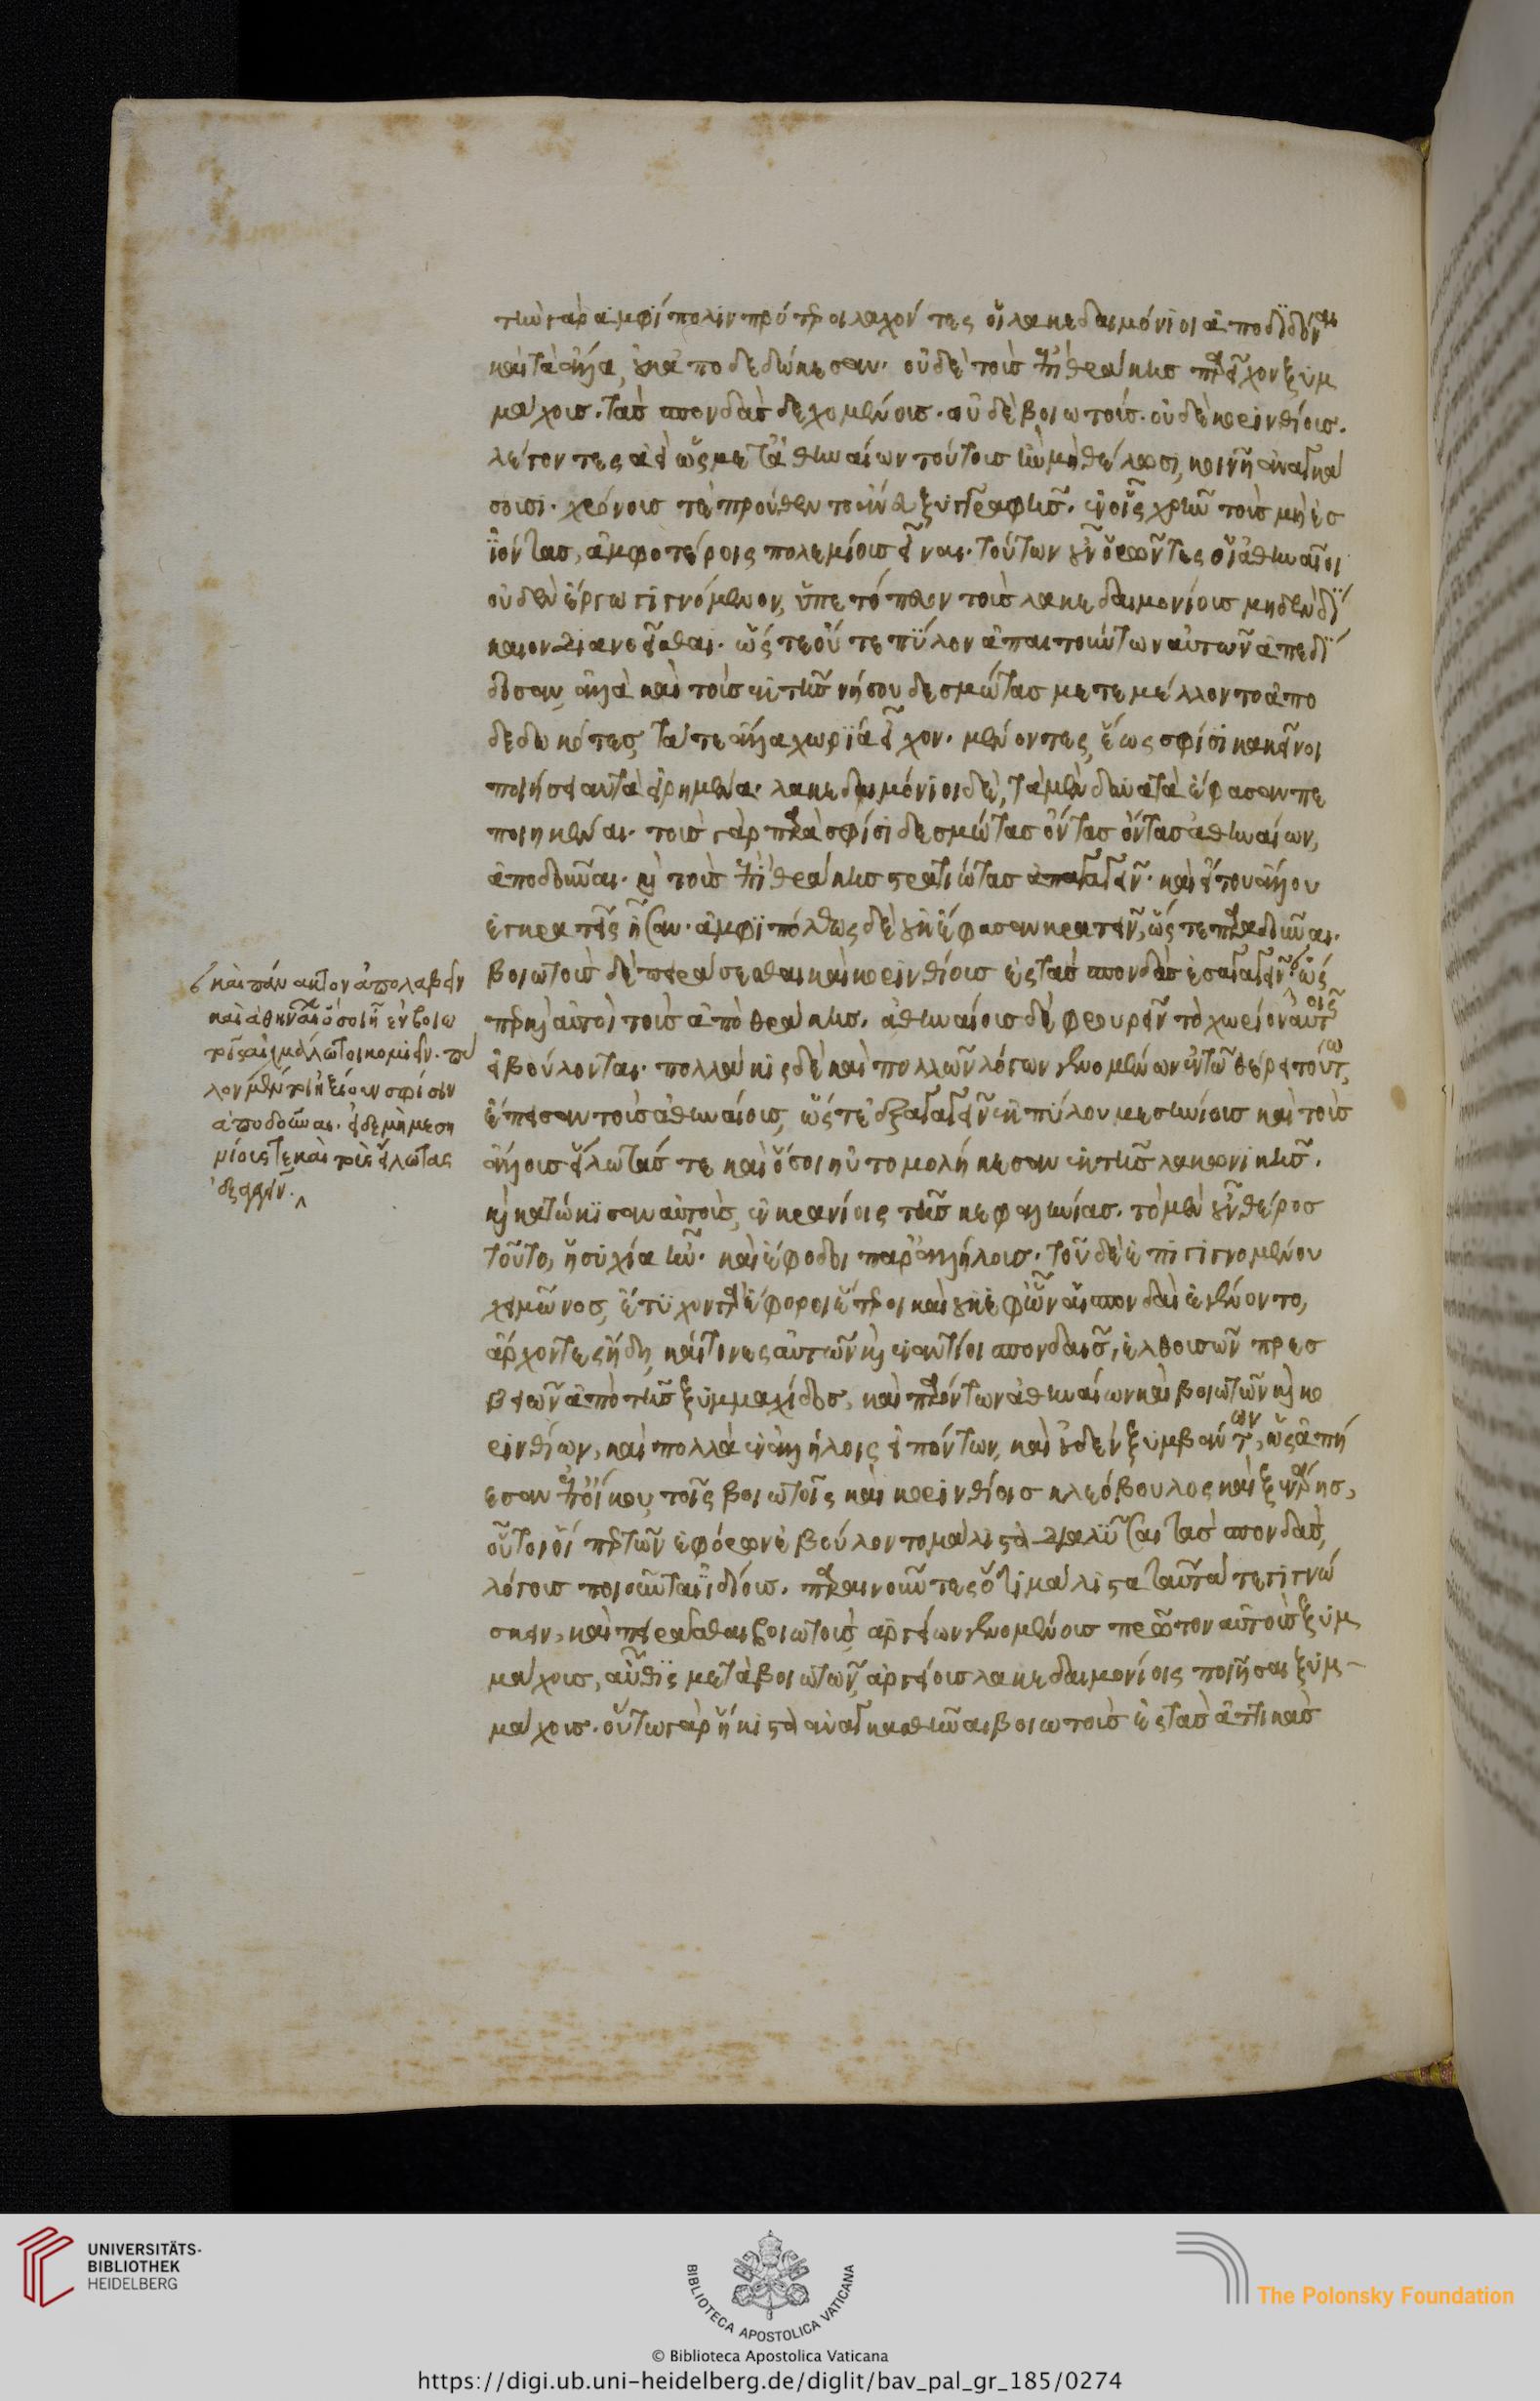 τὴν γὰρ ἀμφίπολιν πρότεροι λαχόντες οἱ λακεδαιμόνιοι ἀποδιδόναι
καὶ τὰ ἄλλα, οὐκ ἀποδεδώκεσαν. οὐδὲ τοὺς ἐπὶ θράκης παρεῖχον ξυμ
μάχους. τὰς σπονδὰς δεχομένους. οὐδὲ βοιωτούς. οὐδὲ κορινθίους.
λέγοντες αἰεὶ ὡς μετὰ ἀθηναίων τούτους ἢν μὴ θέλωσι, κοινῆ ἀναγκά
σουσι. χρόνους τὲ προύθεντο ἄνευ ξυγγραφῆς. ἐν οἷς χρῆν τοὺς μὴ ἐσ
ϊόντας, ἀμφοτέροις πολεμίους εἶναι. τούτων οὖν ὁρῶντες οἱ ἀθηναῖοι
οὐδὲν ἔργω γιγνόμενον, ὑπετόπευον τοὺς λακεδαιμονίους μηδὲν δί
καιον διανοεῖσθαι. ὥστε οὔτε πύλον ἀπαιτούντων αὐτῶν ἀπεδί
δοσαν, ἀλλὰ καὶ τοὺς ἐκ τῆς νήσου δεσμώτας μετεμέλλοντο ἀπο
δεδωκότες, τά τε ἄλλα χωρία εἶχον. μένοντες, ἕως σφίσι κακεῖνοι
ποιήσειαν τὰ εἰρημένα. λακεδαιμόνιοι δὲ, τὰ μὲν δυνατὰ ἔφασαν πε
ποιηκέναι. τοὺς γὰρ παρὰ σφίσι δεσμώτας ὄντας ὄντας ἀθηναίων,
ἀποδοῦναι. καὶ τοὺς ἐπὶ θράκης στρατιώτας ἀπαγαγεῖν. καὶ εἴ του ἄλλου
ἐγκρατεῖς ἦσαν. ἀμφιπόλεως δὲ οὐκ ἔφασαν κρατεῖν, ὥστε παραδοῦναι.
βοιωτοὺς δὲ πειράσεσθαι καὶ κορινθίους ἐς τὰς σπονδὰς ἐσαγαγεῖν. ὡς
πρ καὶ αὐτοὶ τοὺς ἀπὸ θράκης. ἀθηναίους δὲ φρουρεῖν τὸ χωρίον αὐτοὺς
εἰ βούλονται. πολλάκις δὲ καὶ πολλῶν λόγων γενομένων ἐν τῶ θέρει τούτω,
ἔπεισαν τοὺς ἀθηναίους, ὥστε ἐξαγαγεῖν ἐκ πύλου μεσηνίους καὶ τοὺς
ἄλλους εἵλωτάς τε καὶ ὅσοι ηὐτομολήκεσαν ἐκ τῆς λακωνικῆς.
καὶ κατώκισαν αὐτοὺς, ἐν κρανίοις τῆς κεφαληνίας. τὸ μὲν οὖν θέρος
τοῦτο, ἡσυχία ἦν. καὶ ἔφοδοι παρ' ἀλλήλους. τοῦ δὲ ἐπιγιγνομένου
χειμῶνος, ἔτυχον γὰρ ἔφοροι ἕτεροι καὶ οὐκ ἐφ' ὧν αἱ σπονδαὶ ἐγένοντο,
ἄρχοντες ἤδη, καί τινες αὐτῶν καὶ ἐναντίοι σπονδαῖς, ἐλθουσῶν πρεσ
βειῶν ἀπὸ τῆς ξυμμαχίδος, καὶ παρόντων ἀθηναίων καὶ βοιωτῶν καὶ κο
ρινθίων, καὶ πολλὰ ἐν ἀλλήλοις εἰπόντων, καὶ οὐδὲν ξυμβάντων, ὡς ἀπή
εσαν ἐπ' οἴκου, τοῖς βοιωτοῖς καὶ κορινθίοις κλεόβουλος καὶ ξενάρης,
οὗτοι οἵπερ τῶν ἐφόρων ἐβούλοντο μάλιστα διαλῦσαι τὰς σπονδὰς,
λόγους ποιοῦνται ἰδίους. παραινοῦντες ὅτι μάλιστα ταῦτά τε γιγνώ
σκειν, καὶ πειρᾶσθαι βοιωτοὺς, ἀργείων γενομένους πρῶτον αὐτοὺς ξυμ
μάχους, αὖθις μετὰ βοιωτῶν, ἀργείους λακεδαιμονίοις ποιῆσαι ξυμ
μάχους. οὕτω γὰρ ἥκιστα ἀναγκασθῆναι βοιωτοὺς ἐς τὰς ἀττικὰς
καὶ πάνακτον ἀπολαβεῖν
καὶ ἀθηναίων ὅσοι ἦσαν ἐν βοιω
τοῖς αἰχμάλωτοι κομιεῖν. πύ
λον μέντοι ἠξίουν σφίσιν
ἀποδοῦναι. εἰ δὲ μὴ μεση
νίους τε καὶ τοὺς εἵλωτας
ἐξαγαγεῖν.
UNIVERSITÄTS-
BIBLIOTHEK
HEIDELBERG
BIBLIOTECA APOSTOLICA VATICANA
The Polonsky Foundation
© Biblioteca Apostolica Vaticana
https://digi.ub.uni-heidelberg.de/diglit/bav_pal_gr_185/0274